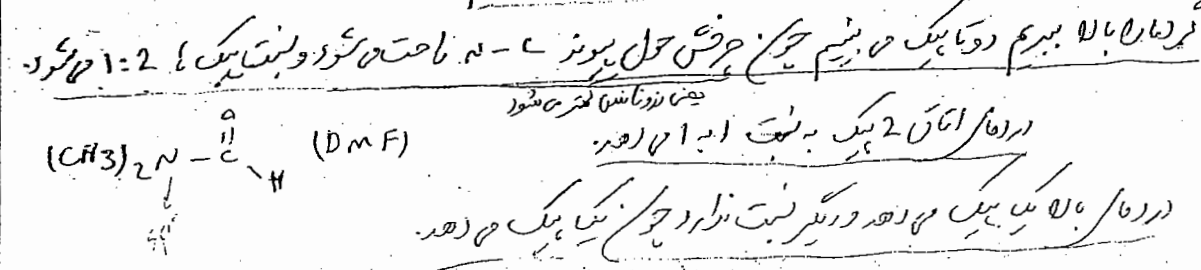 گر دما را بالا ببریم دو تا پیک می بینیم چون چرخش حول پیوند C-N راحت می شود و نسبت پیک ها 1:2 می شود.
یعنی رزونانس کمتر می شود
در دمای اتاق 2 پیک به نسبت 1 به 1 می دهد.
O
(CH3)2N-C (DMF)
H
در دمای بالا یک پیک می دهد و دیگر نسبت ندارد چون یک پیک می دهد.